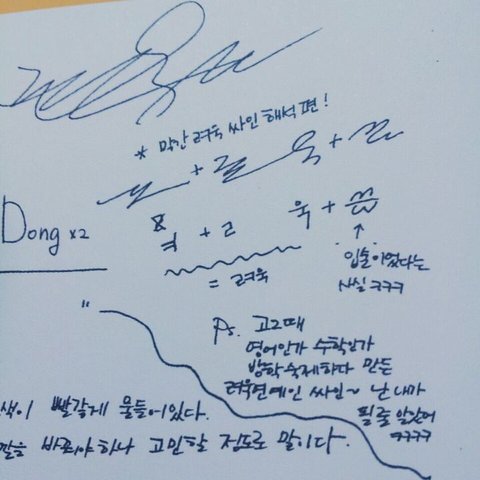 * 막간 려욱 싸인 해석 편!
Dong x2
+ ㄹ 욱 +
= 려욱
↑
입술이었다는
사실 ㅋㅋㅋ
"
Ps. 고2때
영어인가 수학인가
방학숙제하다 만든
려욱연예인 싸인~ 난 내가
ㅋㅋㅋㅋ
색이 빨갛게 물들어있다.
깔을 바꿔야하나 고민할 정도로 말이다.